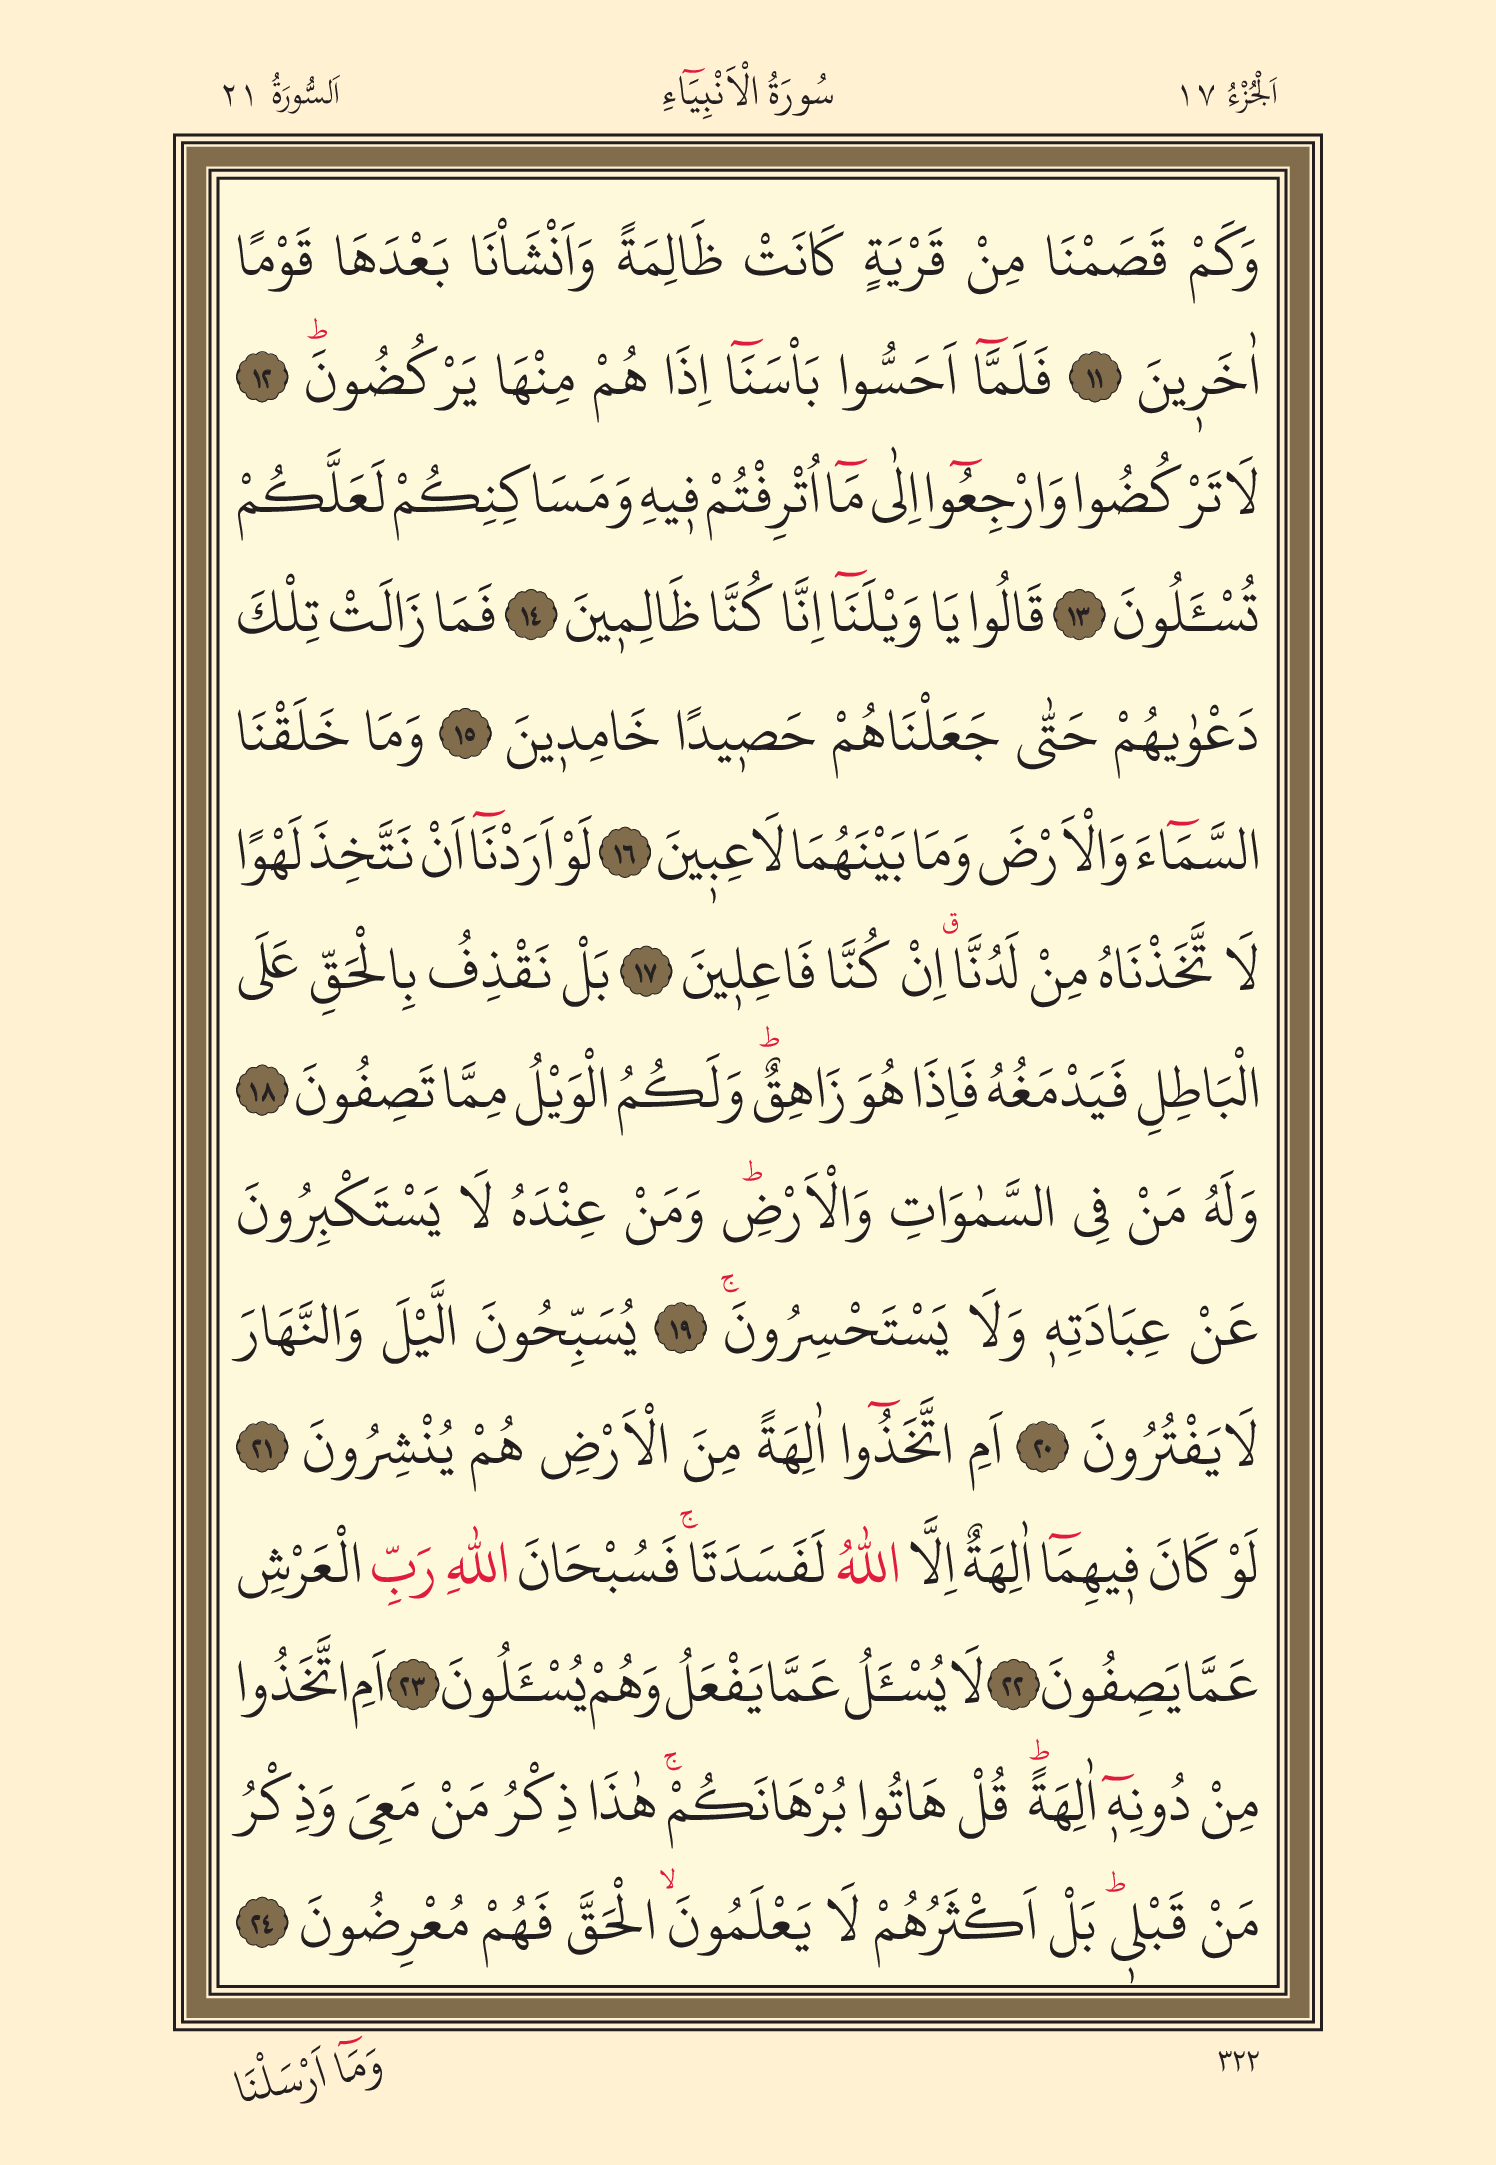 اَلْجُزْءُ ١٧ سُورَةُ الْاَنْبِيَٓاءِ اَلسُّورَةُ ٢١
وَكَمْ قَصَمْنَا مِنْ قَرْيَةٍ كَانَتْ ظَالِمَةً وَاَنْشَاْنَا بَعْدَهَا قَوْمًا
اٰخَرٖينَ ١١ فَلَمَّٓا اَحَسُّوا بَاْسَنَٓا اِذَا هُمْ مِنْهَا يَرْكُضُونَؕ ١٢
لَا تَرْكُضُوا وَارْجِعُٓوا اِلٰى مَٓا اُتْرِفْتُمْ فٖيهِ وَمَسَاكِنِكُمْ لَعَلَّكُمْ
تُسْـَٔلُونَ ١٣ قَالُوا يَا وَيْلَنَٓا اِنَّا كُنَّا ظَالِمٖينَ ١٤ فَمَا زَالَتْ تِلْكَ
دَعْوٰيهُمْ حَتّٰى جَعَلْنَاهُمْ حَصٖيدًا خَامِدٖينَ ١٥ وَمَا خَلَقْنَا
السَّمَٓاءَ وَالْاَرْضَ وَمَا بَيْنَهُمَا لَاعِبٖينَ ١٦ لَوْ اَرَدْنَٓا اَنْ نَتَّخِذَ لَهْوًا
لَا تَّخَذْنَاهُ مِنْ لَدُنَّاۗ اِنْ كُنَّا فَاعِلٖينَ ١٧ بَلْ نَقْذِفُ بِالْحَقِّ عَلَى
الْبَاطِلِ فَيَدْمَغُهُ فَاِذَا هُوَ زَاهِقٌؕ وَلَكُمُ الْوَيْلُ مِمَّا تَصِفُونَ ١٨
وَلَهُ مَنْ فِى السَّمٰوَاتِ وَالْاَرْضِؕ وَمَنْ عِنْدَهُ لَا يَسْتَكْبِرُونَ
عَنْ عِبَادَتِهٖ وَلَا يَسْتَحْسِرُونَۚ ١٩ يُسَبِّحُونَ الَّيْلَ وَالنَّهَارَ
لَا يَفْتُرُونَ ٢٠ اَمِ اتَّخَذُٓوا اٰلِهَةً مِنَ الْاَرْضِ هُمْ يُنْشِرُونَ ٢١
لَوْ كَانَ فٖيهِمَٓا اٰلِهَةٌ اِلَّا اللّٰهُ لَفَسَدَتَاۚ فَسُبْحَانَ اللّٰهِ رَبِّ الْعَرْشِ
عَمَّا يَصِفُونَ ٢٢ لَا يُسْـَٔلُ عَمَّا يَفْعَلُ وَهُمْ يُسْـَٔلُونَ ٢٣ اَمِ اتَّخَذُوا
مِنْ دُونِهٖٓ اٰلِهَةًؕ قُلْ هَاتُوا بُرْهَانَكُمْۚ هٰذَا ذِكْرُ مَنْ مَعِىَ وَذِكْرُ
مَنْ قَبْلٖىؕ بَلْ اَكْثَرُهُمْ لَا يَعْلَمُونَۙ الْحَقَّ فَهُمْ مُعْرِضُونَ ٢٤
٣٢٢ وَمَٓا اَرْسَلْنَا